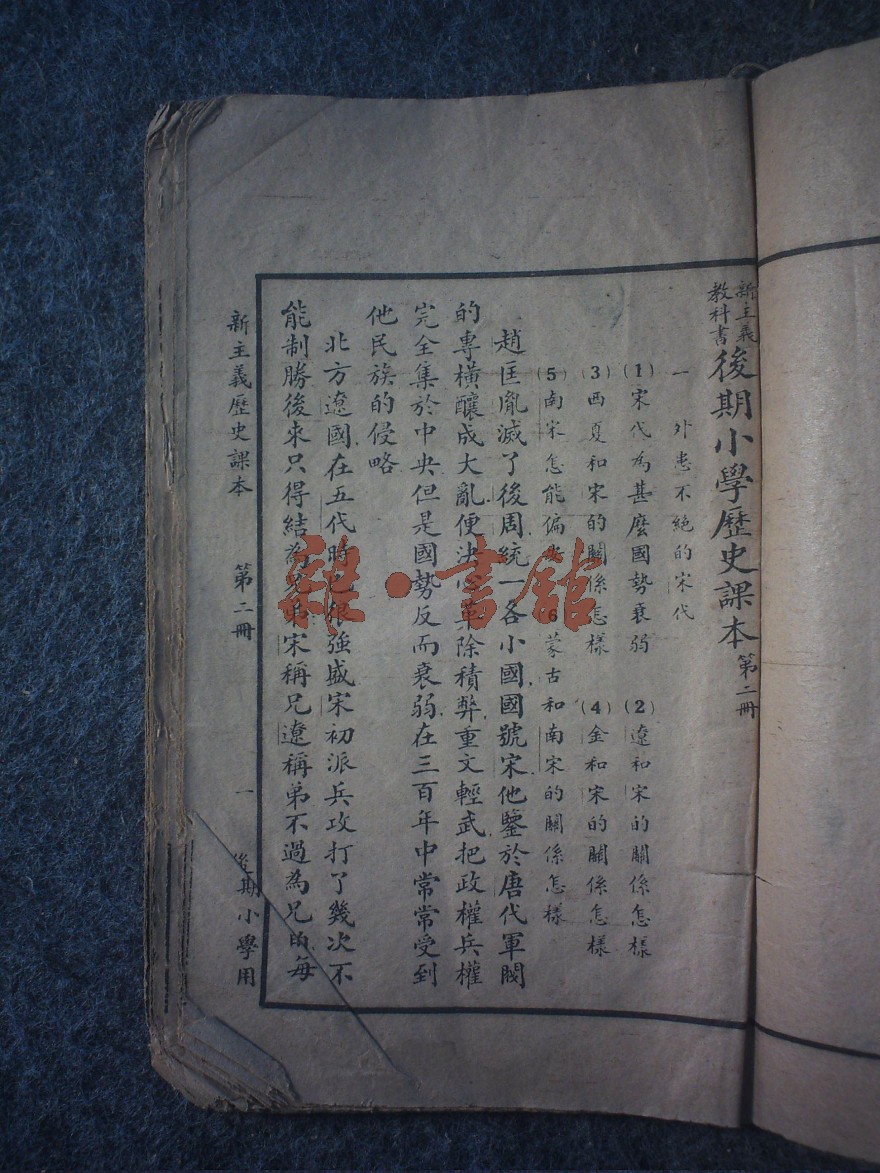 新主義教科書 後期小學歷史課本 第二冊
一 外患不絕的宋代
(1)宋代為甚麼國勢衰弱 (2)遼和宋的關係怎樣
(3)西夏和宋的關係怎樣 (4)金和宋的關係怎樣
(5)南宋怎能偏安 6 蒙古和南宋的關係怎樣
趙匡胤滅了後周統一各小國國號宋他鑒於唐代軍閥
的專橫釀成大亂便決心革除積弊重文輕武把政權兵權
完全集於中央但是國勢反而衰弱在三百年中常常受到
他民族的侵略
北方遼國在五代時已很強盛宋初派兵攻打了幾次不
能制勝後來只得結為兄弟宋稱兄遼稱弟不過為兄的每
新主義歷史課本 第二冊 一 後期小學用
雜·書館